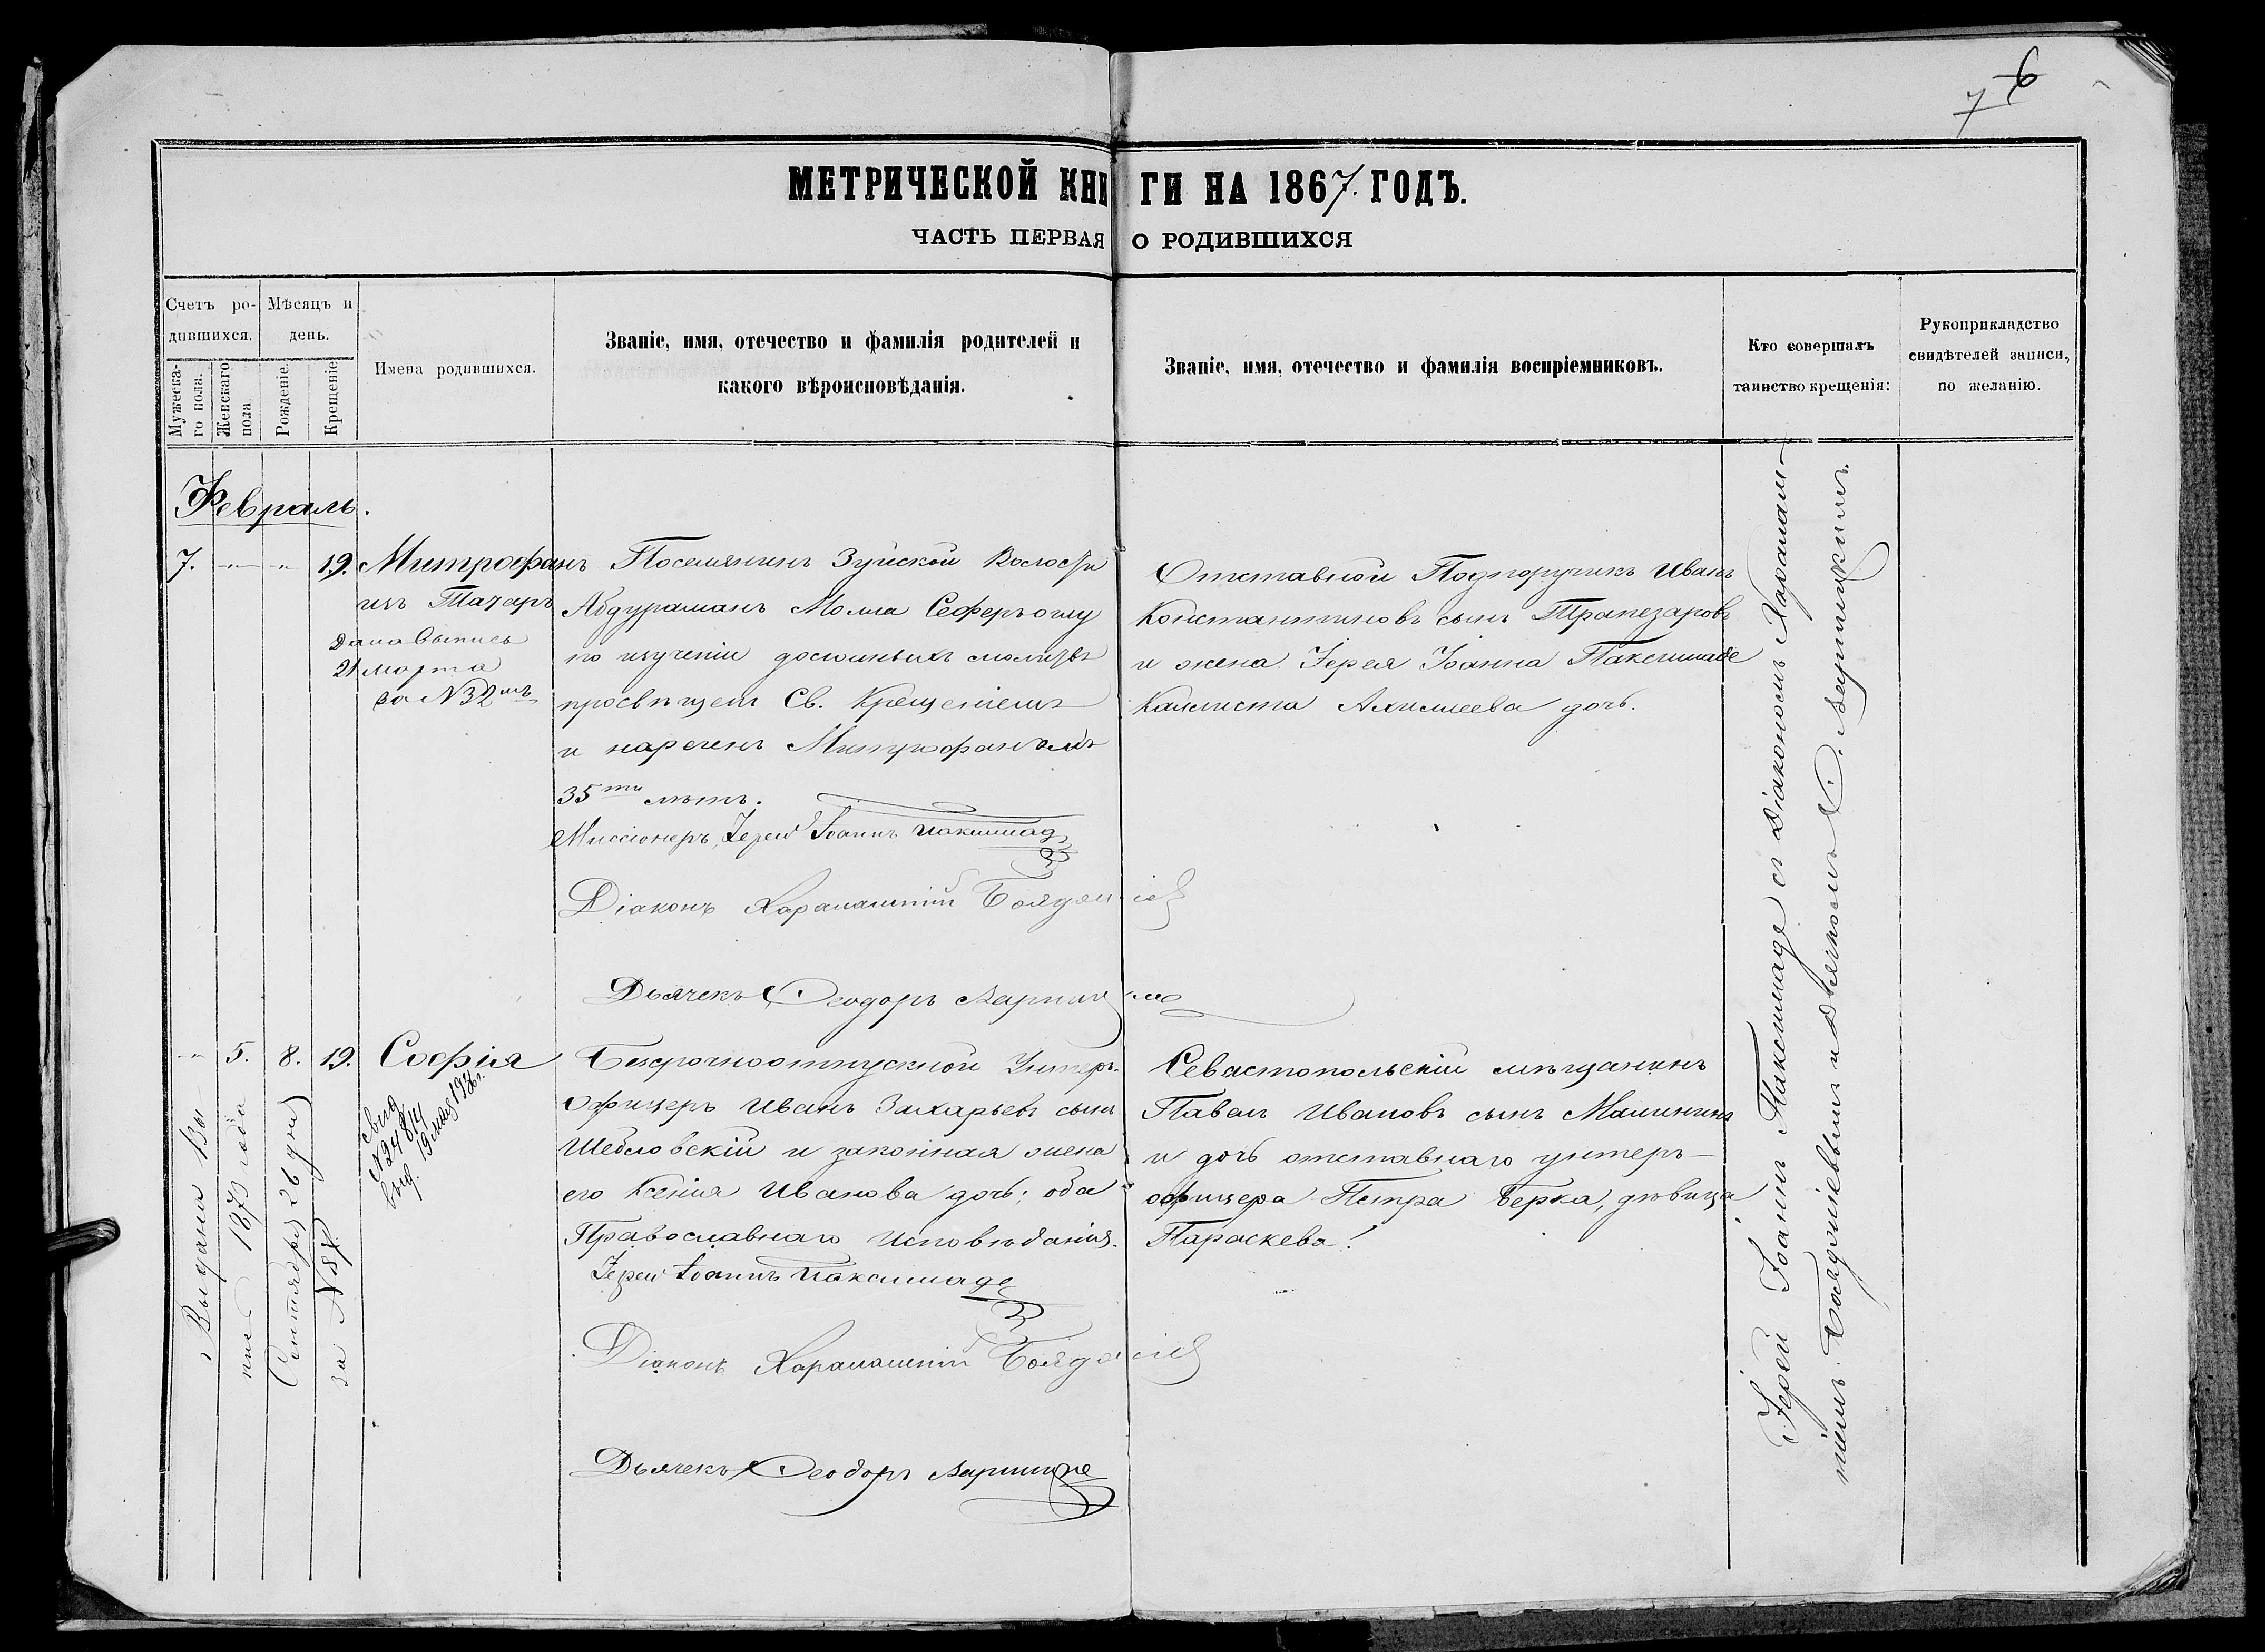 7 6
МЕТРИЧЕСКОЙ КНИГИ НА 1867. ГОДЪ.
ЧАСТЬ ПЕРВАЯ О РОДИВШИХСЯ
Счетъ ро-
дившихся.
Мѣсяцъ и
день.
Мужеска-
го пола.
Женскаго
пола
Рожденіе.
Крещеніе
Имена родившихся.
Званіе, имя, отечество и фамилія родителей и
какого вѣроисповѣданія.
Званіе, имя, отечество и фамилія воспріемниковъ.
Кто совершалъ
таинство крещенія:
Рукоприкладство
свидѣтелей записи,
по желанію.
Февраль.
7. 19. Митрофанъ
изъ Татаръ
Дана Выпись
21 марта
за N 32мъ
Поселянинъ Зуйской Волости
Абдураманъ Молла Сеферъ оглу
по изученіи молитвъ
просвѣщенъ Св. Крещеніемъ
и нареченъ Митрофаномъ
35ти лѣтъ.
Миссіонеръ, Іерей Іоаннъ Паксимаде
Діаконъ Харалампій
Дьячекъ Ѳеодоръ
Отставной Подпоручикъ Иванъ
Константиновъ сынъ Трапезаровъ
и жена Іерея Іоанна Паксимаде
Каллиста дочь.
5. 8. 19. Софія
свид
N 24814
выд. 19 мая
Выдана
1873 года
Сентября 26 дня
за N 87
Безсрочноотпускной Унтеръ-
офицеръ Иванъ Захарьевъ сынъ
Шебловскій и законная жена
его Ксенія Иванова дочь; оба
Православнаго исповѣданія.
Іерей Іоаннъ Паксимаде
Діаконъ Харалампій
Дьячекъ Ѳеодоръ
Севастопольскій мѣщанинъ
Павелъ Ивановъ сынъ Малининъ
и дочь отставнаго унтеръ-
офицера Петра Берка, дѣвица
Параскева.
Іерей Іоаннъ Паксимаде съ Діакономъ Харалам-
піемъ и Дьячкомъ Ѳ.